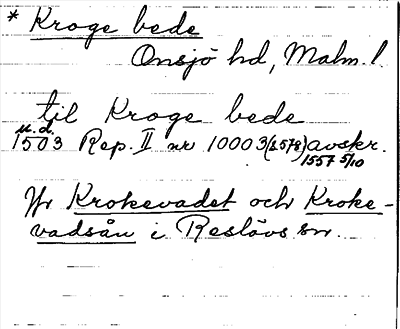 * Kroge bede
Onsjö hd, Malm. l.
til Kroge bede
u.d.
1503 Rep. II nr 10003 (s 578) avskr.
1557 5/10
Jfr Krokevadet och Kroke-
vadsån i Reslövs sn.